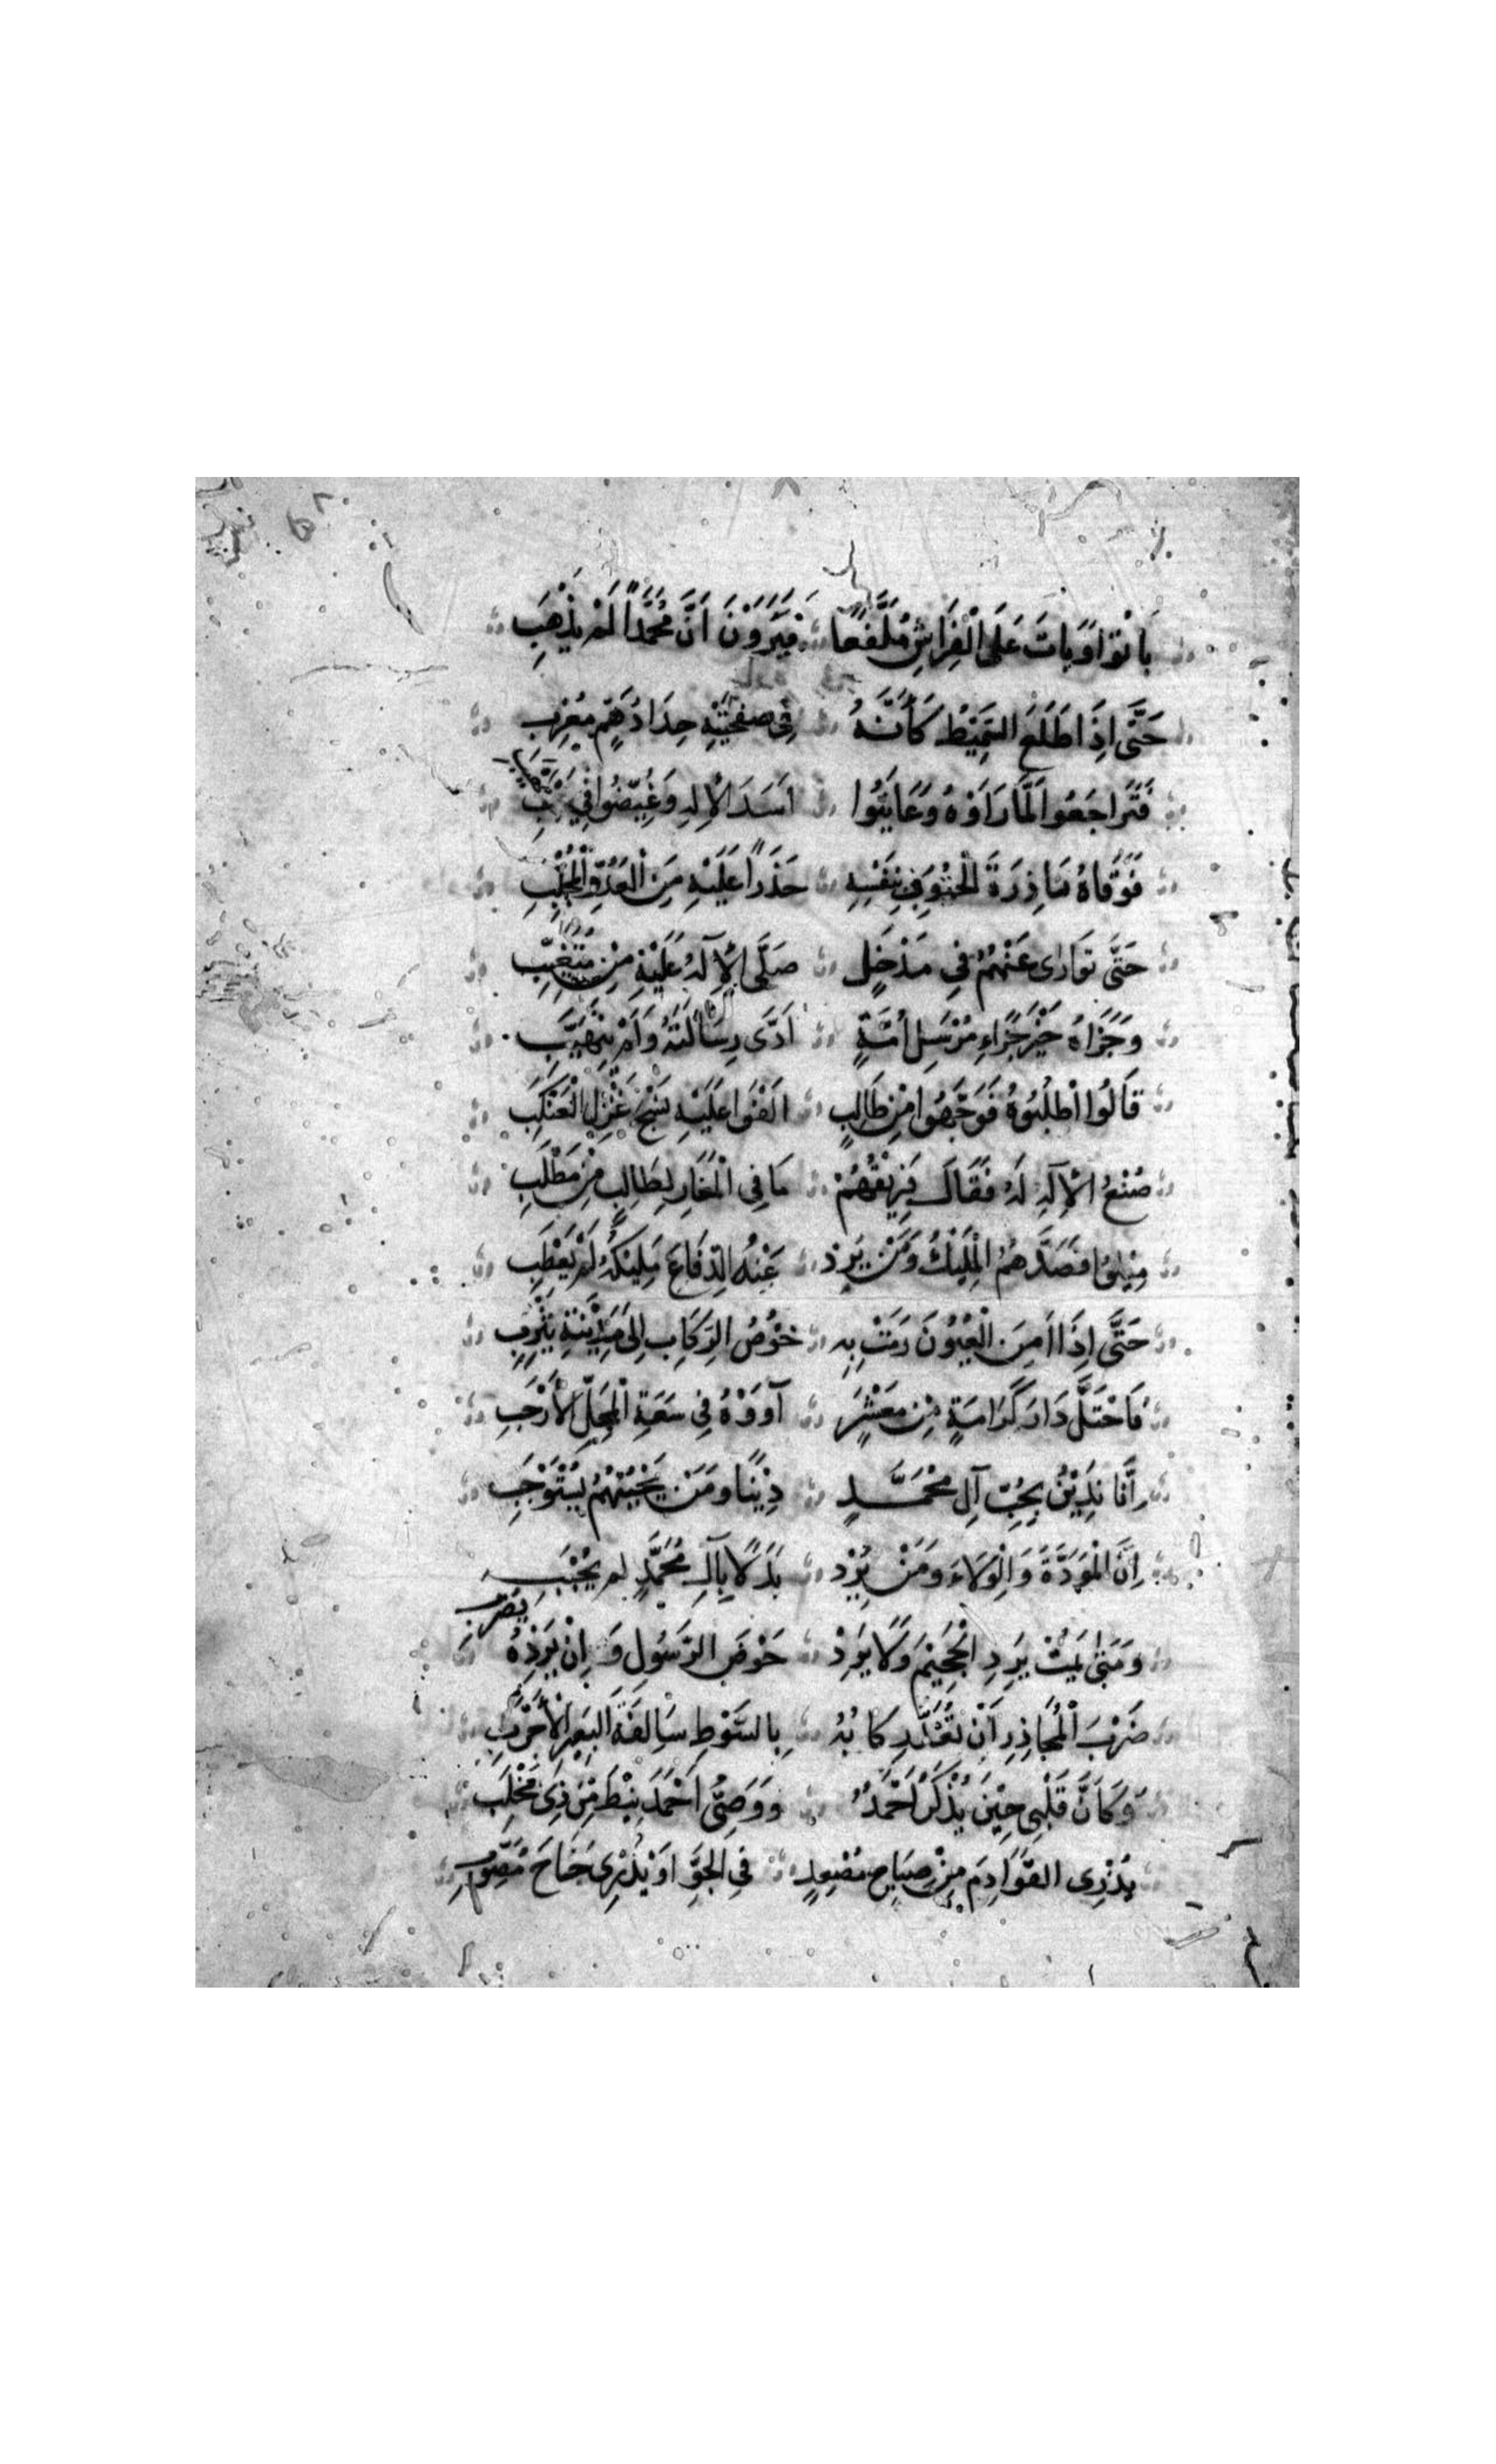 بَاتُوْا وَبَاتَ عَلَى الْفِرَاشِ مُلَفَّعًا فَيَرَوْنَ اَنَّ مُحَمَّدًا لَمْ يَذْهَبِ
حَتَّى اِذَا طَلَعَ الشَّمِيْطُ كَأَنَّهُ فِي صَفْحَتَيْهِ حِدَادُهُمْ مُغْرِبِ
فَتَرَاجَعُوا لَمَّا رَاَوْهُ وَعَايَنُوا اَسَدَ الْاِلٰهِ وَغُيِّضُوا فِي
فَوَقَاهُ بَادِرَةَ الْحُتُوفِ بِنَفْسِهِ حَذَرًا عَلَيْهِ مِنَ الْعَدُوِّ الْمُجْلِبِ
حَتَّى تَوَارَى عَنْهُمُ فِي مَدْخَلٍ صَلَّى الْاِلٰهُ عَلَيْهِ مِنْ مُتَغَيِّبِ
وَجَزَاهُ خَيْرَ جَزَاءِ مُرْسَلِ اُمَّةٍ اَدَّى رِسَالَتَهُ وَلَمْ يَتَهَيَّبِ
قَالُوا اطْلُبُوهُ فَوَجَّهُوا مِنْ طَالِبٍ اَلْفَوْا عَلَيْهِ نَسْجَ غَزْلِ الْعَنْكَبِ
صُنْعُ الْاِلٰهِ لَهُ فَقَالَ فَرِيْقُهُمْ مَا فِي الْمَغَارِ لِطَالِبٍ مِنْ مَطْلَبِ
مِيْلُوا فَصَدَّهُمُ الْمَلِيْكُ وَمَنْ يَرِدْ عَنْهُ الدِّفَاعَ مَلِيْكُهُ لَمْ يَعْطَبِ
حَتَّى اِذَا اَمِنَ الْعُيُوْنَ رَمَتْ بِهِ خُوْصُ الرِّكَابِ اِلَى مَدِيْنَةِ يَثْرِبِ
فَاحْتَلَّ دَارَ كَرَامَةٍ مِنْ مَعْشَرٍ آوَوْهُ فِي سَعَةِ الْمَحَلِّ الْاَرْحَبِ
اِنَّا نَدِيْنُ بِحُبِّ آلِ مُحَمَّدٍ دِيْنًا وَمَنْ يُحْبِبْهُمُ يَسْتَوْجِبِ
اِنَّ الْمَوَدَّةَ وَالْوَلَاءَ وَمَنْ يُرِدْ بَدَلًا بِآلِ مُحَمَّدٍ لم يُحْبَبِ
وَمَتٰى يَمُتْ يَرِدِ الْجَحِيْمَ وَلَا يَرِدْ حَوْضَ الرَّسُولِ وَاِنْ يَرِدْهُ يُضْرَبِ
ضَرْبَ الْمُحَاذِرِ اَنْ تُعَرَّ رِكَابُهُ بِالسَّوْطِ سَالِفَةَ الْبَعِيْرِ الْاَجْرَبِ
وَكَاَنَّ قَلْبِي حِيْنَ يُذْكَرُ اَحْمَدُ وَوَصِيُّ اَحْمَدَ نِيْطَ مِنْ ذِي مَخْلَبِ
بِذُرَى الْقَوَادِمِ مِنْ جَنَاحِ مُصْعِدٍ فِي الْجَوِّ اَوْ بِذُرَى جَنَاحِ مُصَوِّبِ